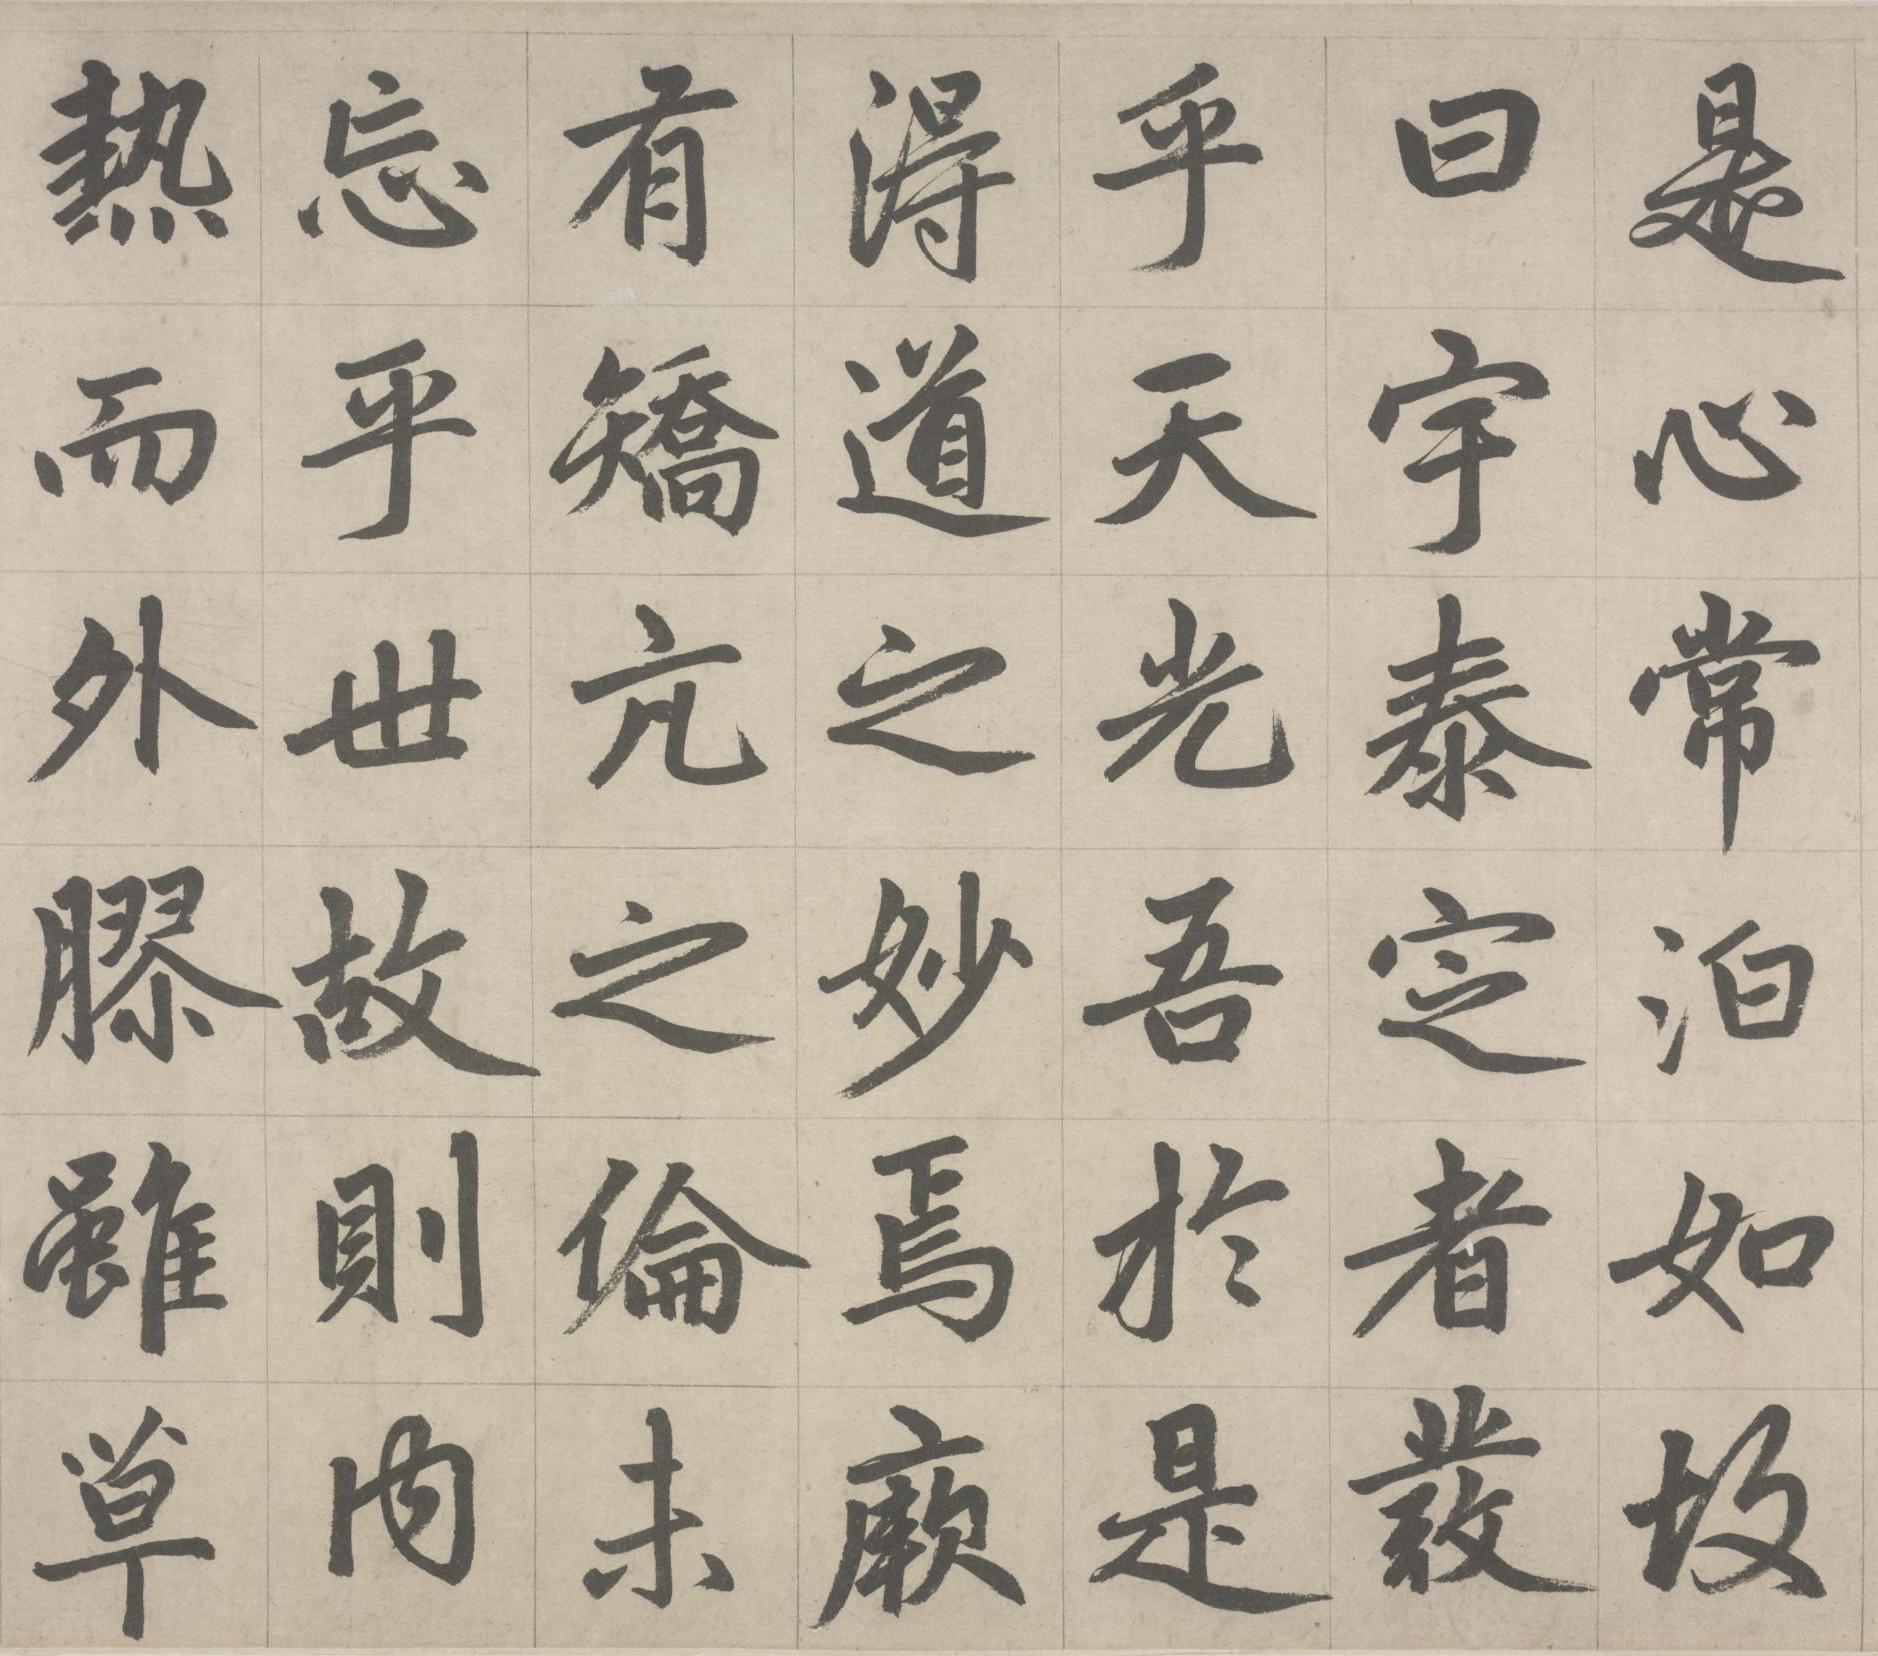 是心常泊如故
曰宇泰定者發
乎天光吾於是
得道之妙焉厥
有矯亢之倫未
忘乎世故則内
熱而外膠雖草